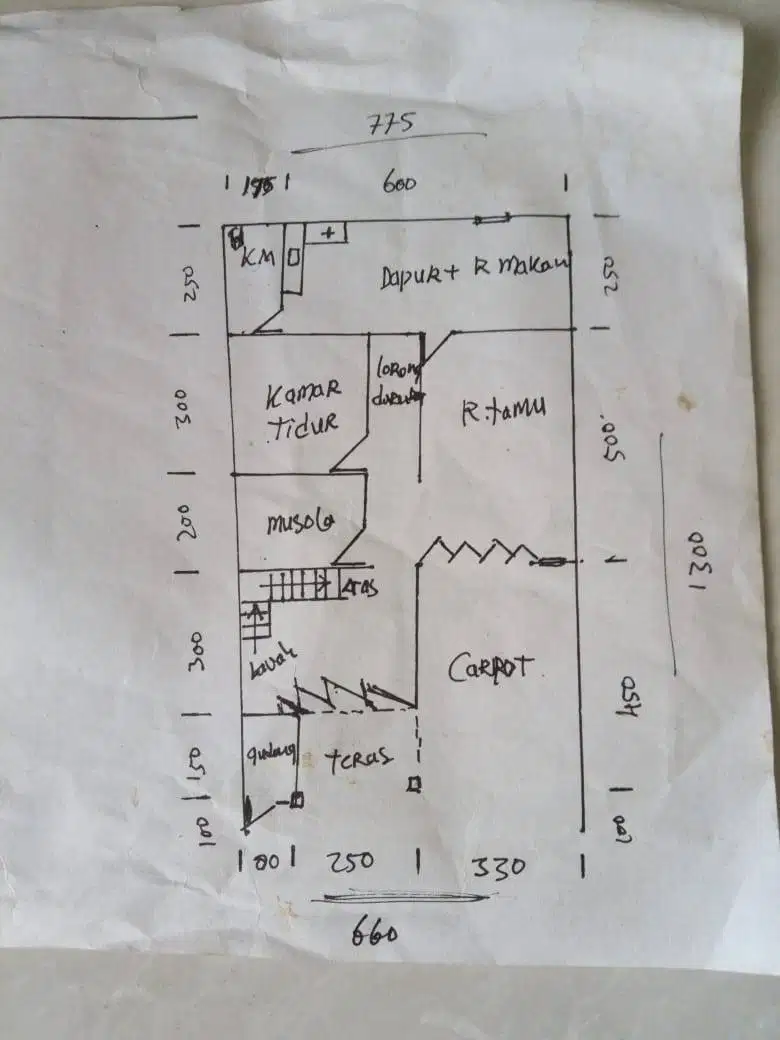 775
600
KM
+
Dapur + R makan
250
250
Kamar
Tidur
lorong
R.tamu
300
500
musola
200
1300
Atas
300
Carpot
450
gudang
teras
150
100
100
250
330
660